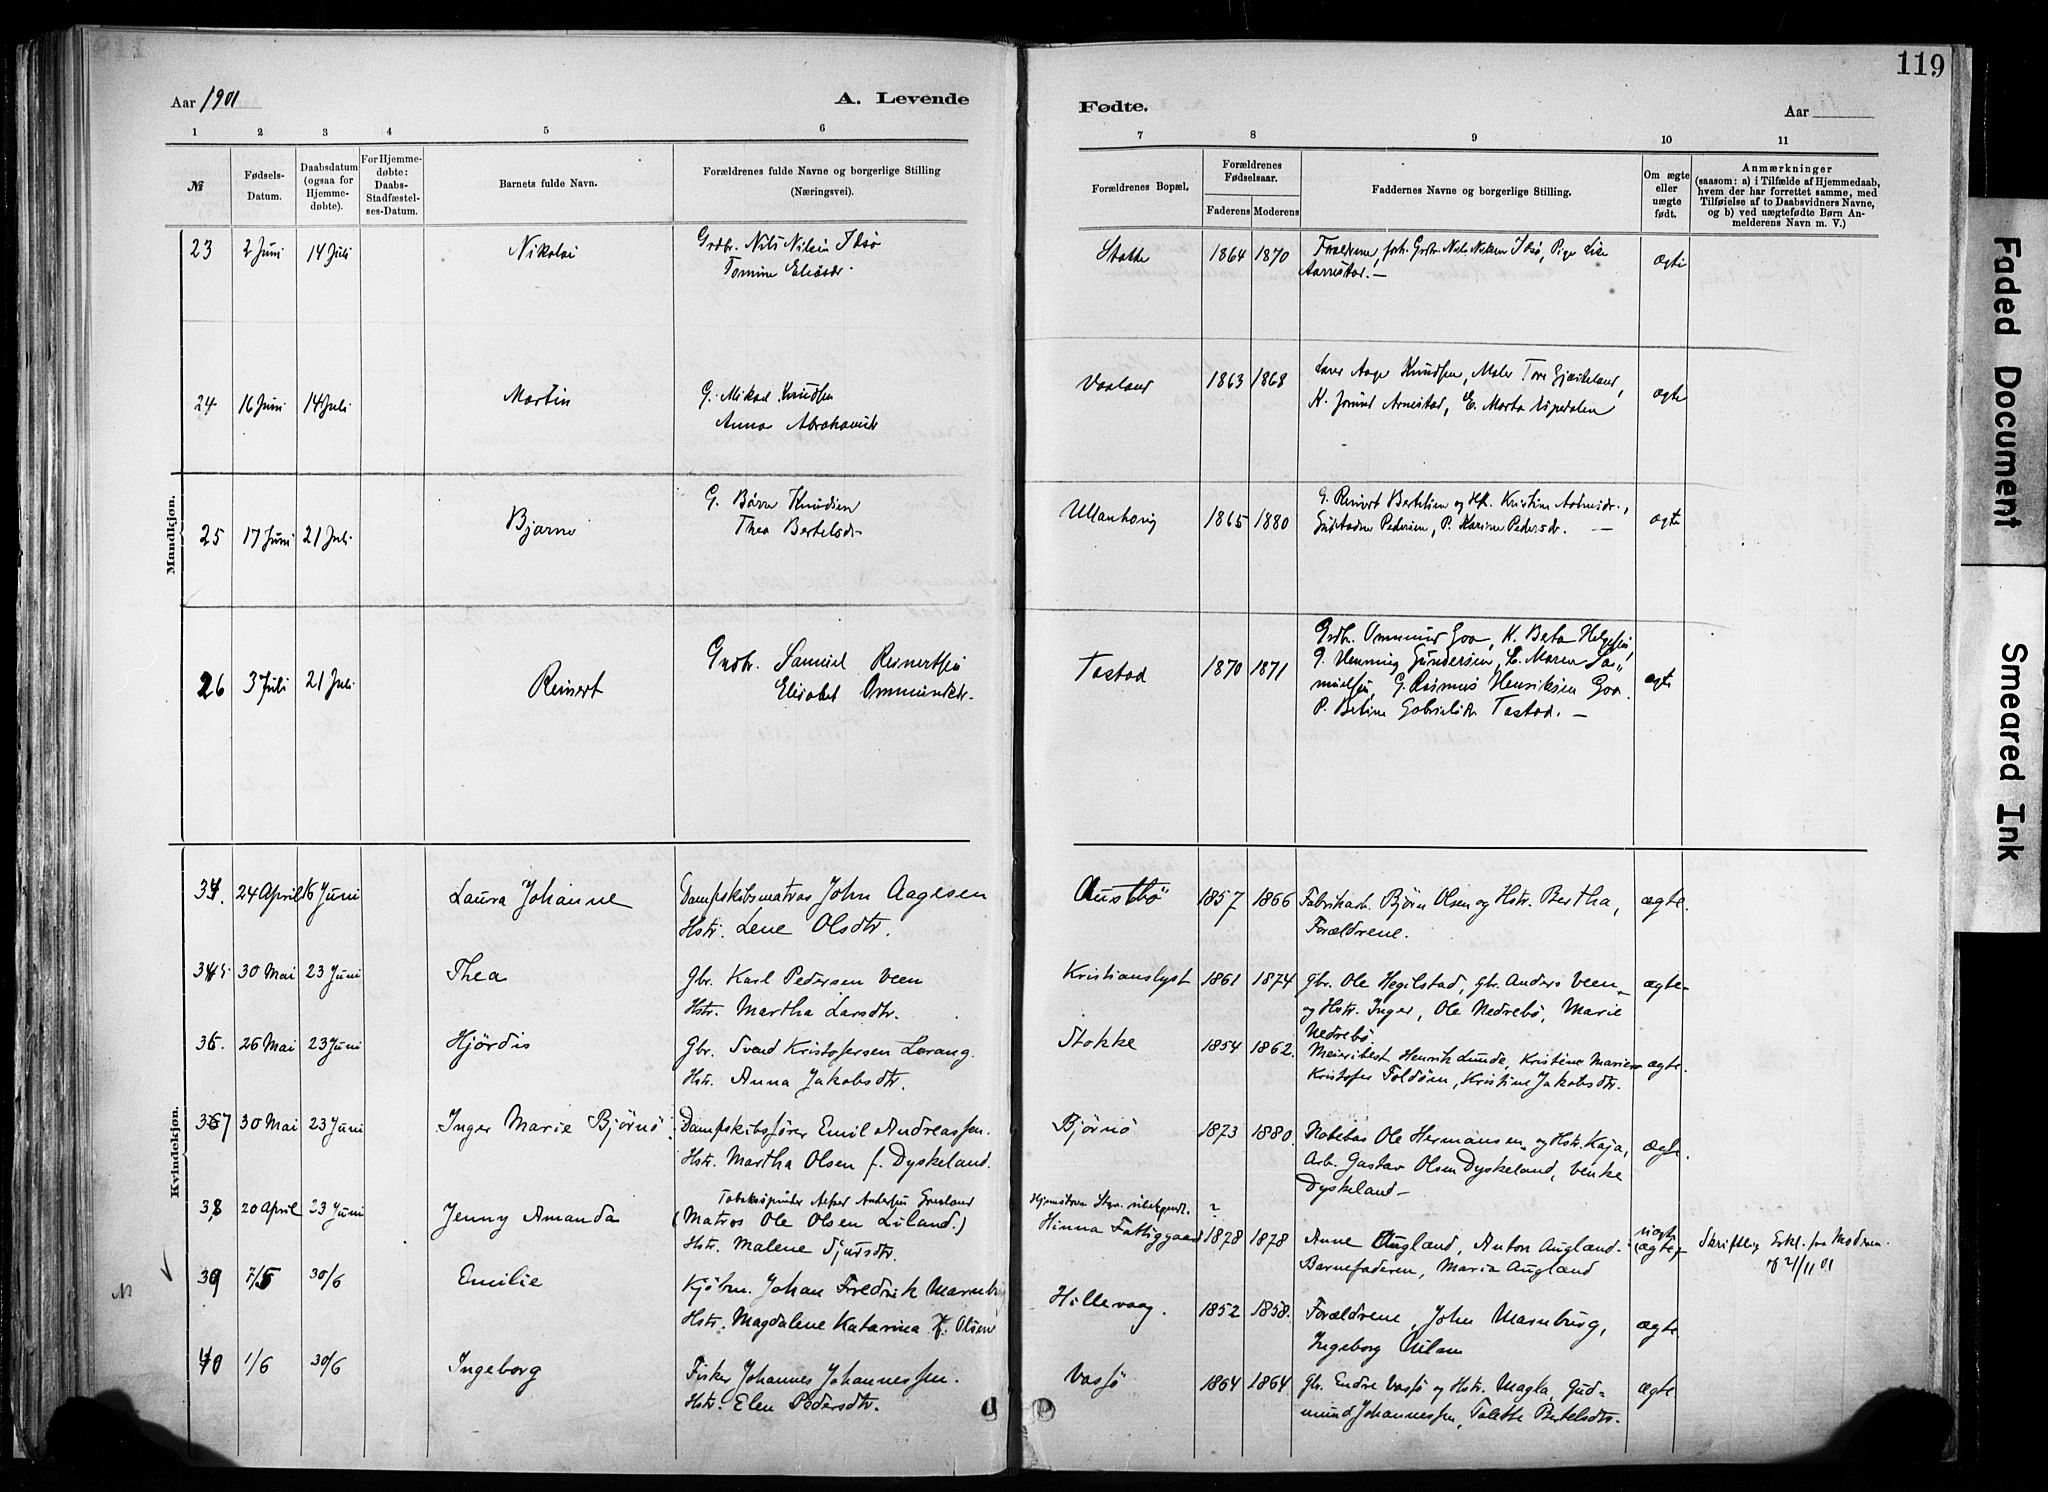 119
Aar 1901
A. Levende
Fødte.
Aar
1 2 3 4 5 6 7 8 9 10 11
№
Fødsels-
Datum.
Daabsdatum
(ogsaa for
Hjemme-
døbte).
For Hjemme-
døbte:
Daabs-
Stadfæstel-
ses-Datum.
Barnets fulde Navn.
Forældrenes fulde Navne og borgerlige Stilling
(Næringsvei).
Forældrenes Bopæl.
Forældrenes
Fødselsaar.
Faderens Moderens
Faddernes Navne og borgerlige Stilling.
Om ægte
eller
uægte
født.
Anmærkninger
(saasom: a) i Tilfælde af Hjemmedaab,
hvem der har forrettet samme, med
Tilføielse af to Daabsvidners Navne,
og b) ved uægtefødte Børn An-
melderens Navn m. V.)
Mandkjøn.
23 2 Juni 14 Juli Nikolai Grdbr. Nils Nilsen
Tomine 1864 1870 Forældrene, Pige Lise
Aarrestad. — ægte
24 16 Juni 14 Juli Martin G. Mikal Knudsen
Anna Abrahamsdr Vaaland 1863 1868 Aage Knudsen, Maler Tore
K. Arrestad, E. Marta ægte
25 17 Juni 21 Juli Bjarne G. Børre Knudsen
Thea Bertelsdr. Ullenhaug 1865 1880 G. Reinert Bertelsen og Kristine
Pedersen, P. Karine Pedersdr. — ægte
26 3 Juli 21 Juli Reinert Grdbr. Samuel Reinertsen
Elisabet Ommundsdr. Tastad 1870 1871 Grdbr. Ommund Goa, K. Berta Helgesen,
G. Henning Gundersen, E. Maren Sa-
muelsen, G. Rasmus Henriksen Goa.
P. Betine Gabrielsdr Tastad. — ægte
Kvindekjøn.
34. 24 April 16 Juni Laura Johanne Dampskibsmatros John Aagesen
Hstr. Lene Olsdtr. Austbø 1857 1866 Fabrikarb. Björn Olsen og Hstr. Bertha,
Forældrene. ægte.
35 30 Mai 23 Juni Thea Gbr. Karl Pedersen Veen
Hstr. Martha Larsdtr. Kristianslyst 1861 1874 Gbr. Ole Hegilstad, Gbr. Anders Veen
og Hstr. Inger, Ole Nedrebö, Marie
Nedrebö ægte
36. 26 Mai 23 Juni Hjördis Gbr. Svend Kristofersen Lerang.
Hstr. Anna Jakobsdtr. Stokke 1854 1862. Meieribest Henrik Lunde, Kristine
Kristofer Foldöen, Kristine Jakobsdtr. ægte.
37 30 Mai 23 Juni Inger Marie Bjørnö Dampskibsfører Emil Andreassen.
Hstr. Martha Olsen f. Dyskeland. Bjørnö 1873 1880. Notebas Ole Hermansen og Hstr. Kaja,
Arb. Gustav Olsen Dyskeland, Venke
Dyskeland — ægte.
38 20 April 23 Juni Jenny Amanda
(Matros Ole Olsen Liland.)
Hstr. Malene Sjursdtr. Hinna Fattiggaard ? 1878 1878 Anne Augland, Anton Augland.
Barnefaderen, Maria Augland uægte (ægte) Skriftlig Erkl. fra Moderen
af 2/11 01
39 7/5 30/6 Emilie Kjøbm. Johan Fredrik Marnburg
Hstr. Magdalene Katarina f. Olsen Hillevaag. 1852 1858. Forældrene, John Marnburg,
Ingeborg ægte
40 1/6 30/6 Ingeborg Fisker Johannes Johannessen.
Hstr. Elen Pedersdtr. Vassö 1864 1864 Gbr. Endre Vassö og Hstr. Magla, Gud-
mund Johannessen, Talette Bertelsdtr. ægte
Faded Document
Smeared Ink